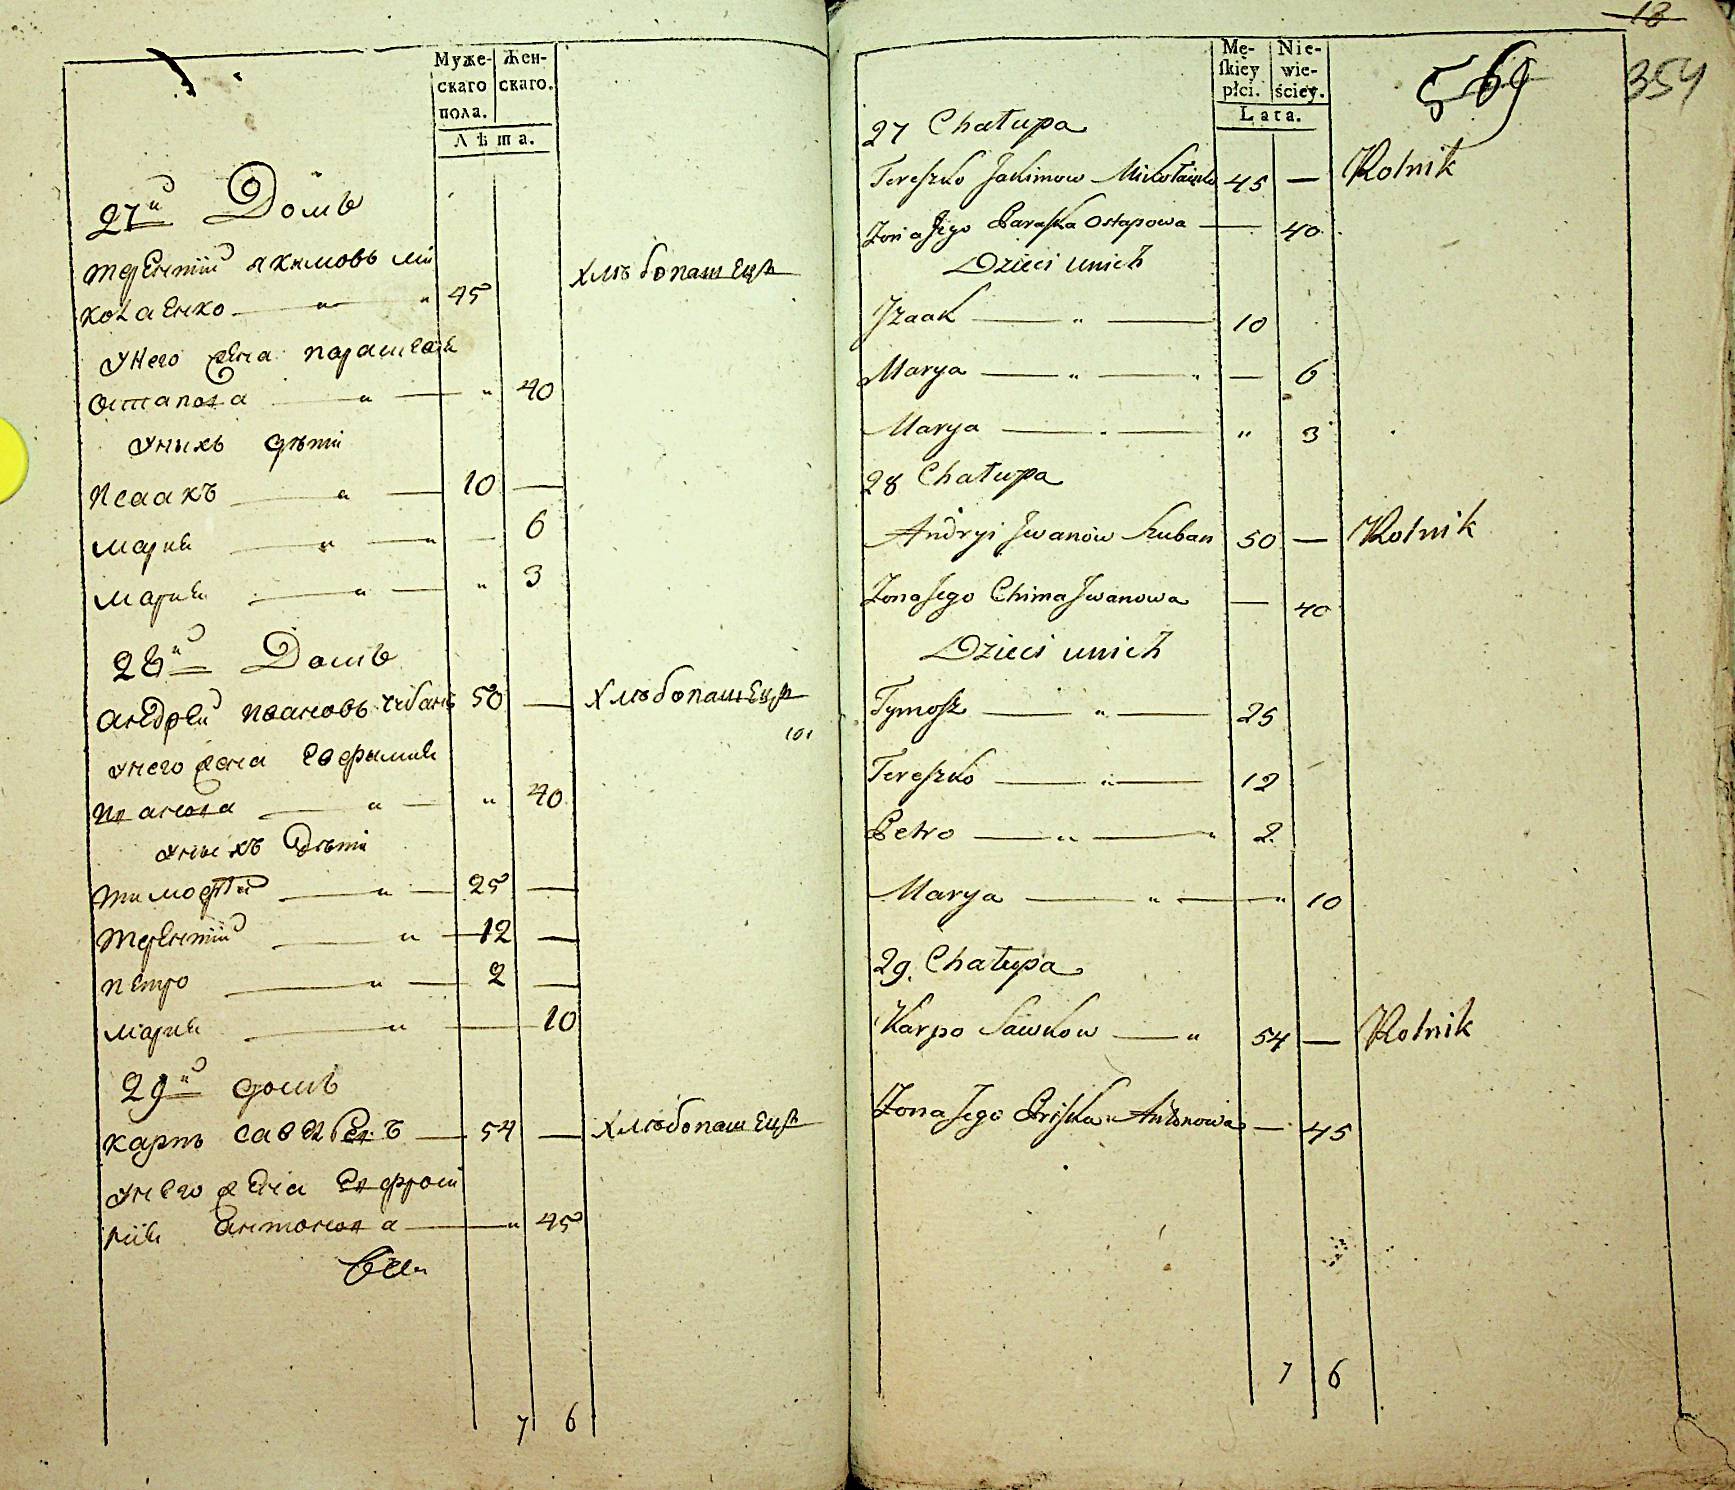 Муже-
скаго
пола.
Жен-
скаго.
Лѣта.
27й Домъ
терентій якимовъ ми
колаенко " " 45
хлѣбопашецъ
унего жена парасковія
остапова " " 40
уныхъ дѣти
исаакъ " 10 —
мария " " — 6
мария " " 3
28й Домъ
андрей ивановъ чубанъ 50 —
хлѣбопашецъ
унего жена евфимия
иванова " " 40
уныхъ дѣти
тимофей " 25 —
терентій " 12 —
петро " 2 —
мария " 10
29й домъ
карпъ савельевъ — 54 —
хлѣбопашецъ
унего жена евфроси
нія антонова " 45
7 6
18
569
354
Mę-
skiey
płci.
Nie-
wie-
ściey.
Lata.
27 Chałupa
Tereszko Jakimow Mikołaienko 45 — Rolnik
Żona Jego Paraska Ostapowa — 40
Dzieci unich
Jzaak " 10
Marya " " — 6
Marya " 3
28 Chałupa
Andryi Jwanów Kuban 50 — Rolnik
Żona Jego Chima Jwanowa — 40
Dzieci unich
Tymosz " 25
Tereszko " 12
Petro " " 2
Marya " " 10
29. Chałupa
Karpo Sawkow " 54 — Rolnik
Żona Jego Priska Antonowa — 45
7 6